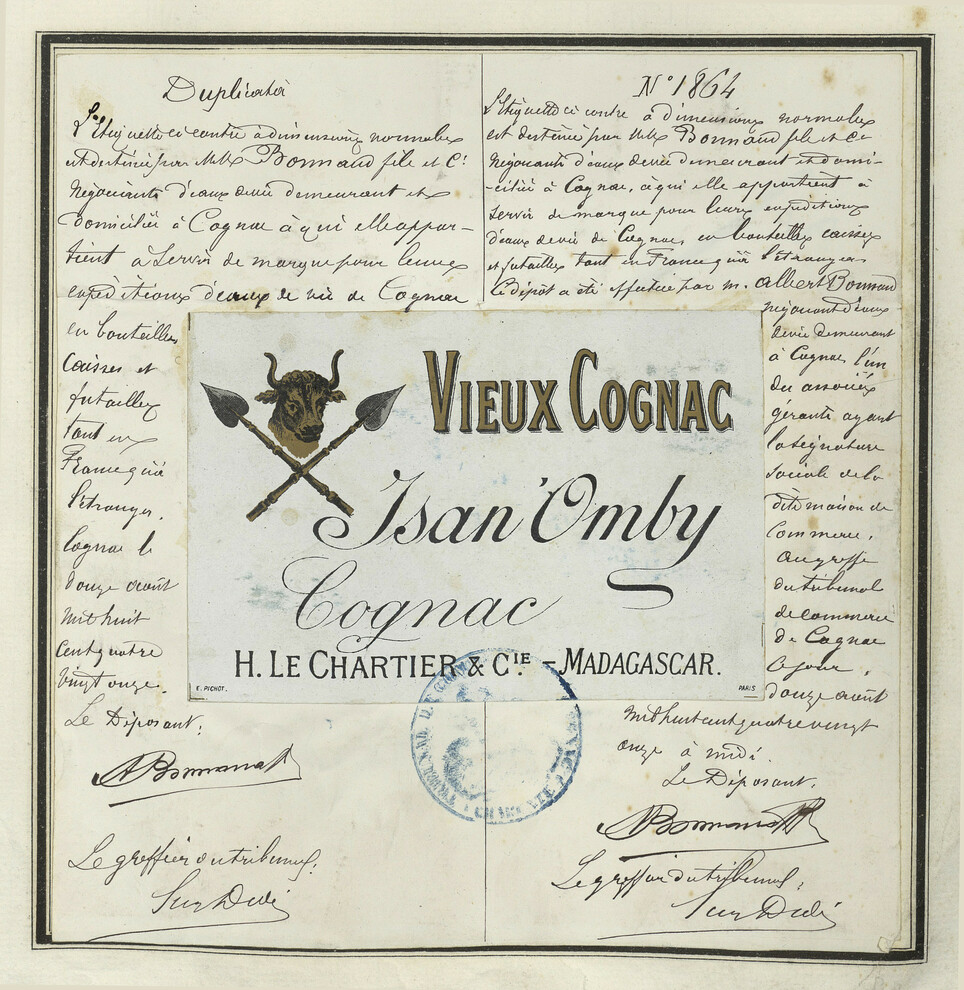 Duplicata
L'étiquette ci contre à dimensions normales
est destinée par MM Bonnaud fils et Cie
Négociants d'eaux de vie demeurant et
domiciliés à Cognac à qui elle appar-
tient à servir de marque pour leurs
expéditions d'eaux de vie de Cognac
en bouteilles
Caisses et
futailles
tant en
France qu'à
l'étranger.
Cognac le
douze août
mil huit
cent quatre
vingt onze.
Le Déposant:
ABonnaud
Le greffier du tribunal:
N° 1864
L'étiquette ci contre à dimensions normales
est destinée par MM Bonnaud fils et Cie
Négociants d'eaux de vie demeurant et domi-
-ciliés à Cognac, à qui elle appartient à
servir de marque pour leurs expéditions
d'eaux de vie de Cognac, en bouteilles caisses
et futailles tant en France qu'à l'étranger
Le dépôt a été effectué par M. Albert Bonnaud
négociant d'eaux-
de vie demeurant
à Cognac, l'un
des associés
gérants ayant
la signature
sociale de la
dite maison de
Commerce,
au greffe
du tribunal
de commerce
de Cognac
ce jour,
douze août
mil huit cent quatre vingt
onze à midi.
Le Déposant.
ABonnaud
Le greffier du tribunal:
VIEUX COGNAC
Isan'Omby
Cognac
H. LE CHARTIER & CIE. - MADAGASCAR.
E. PICHOT.
PARIS